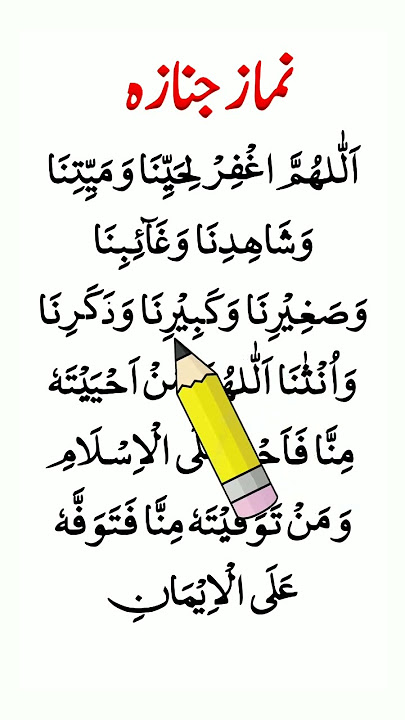 نماز جنازہ
اَللّٰهُمَّ اغْفِرْ لِحَيِّنَا وَمَيِّتِنَا
وَشَاهِدِنَا وَغَآئِبِنَا
وَصَغِيْرِنَا وَكَبِيْرِنَا وَذَكَرِنَا
وَاُنْثٰنَا اَحْيَيْتَهٗ
مِنَّا الْاِسْلَامِ
وَمَنْ تَوَفَّيْتَهٗ مِنَّا فَتَوَفَّهٗ
عَلَى الْاِيْمَانِ